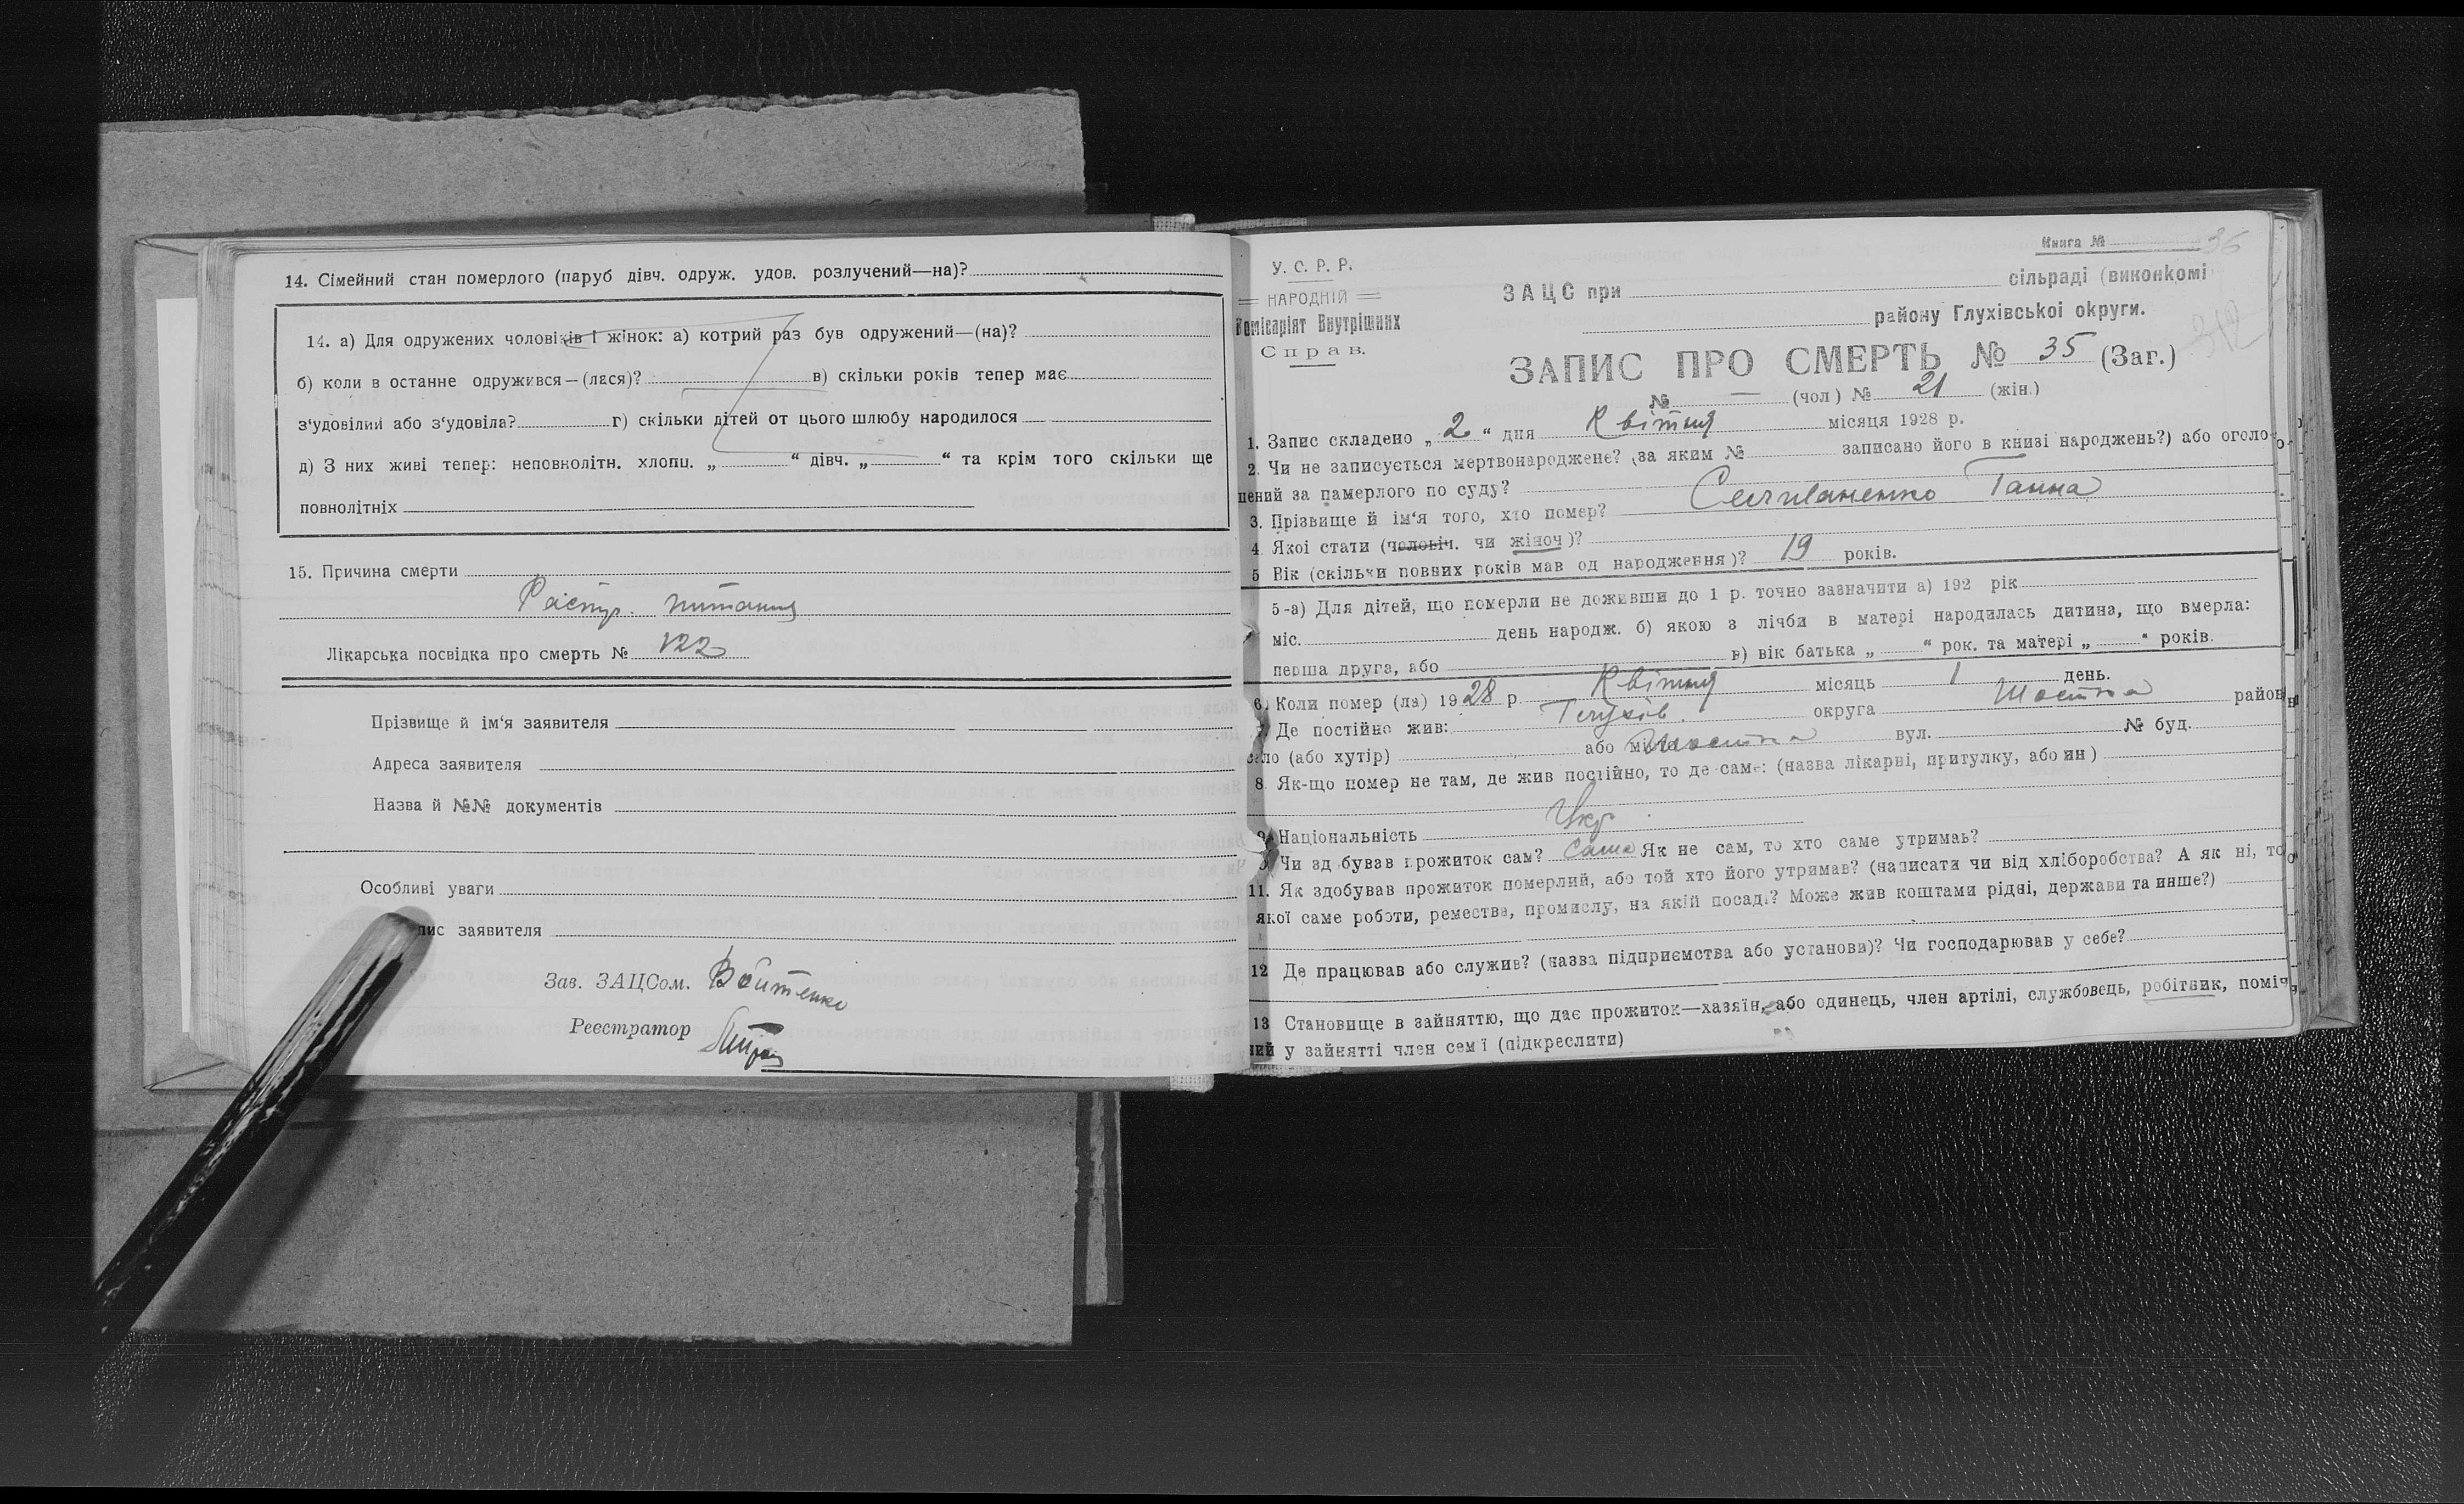 14. Сімейний стан померлого (паруб дівч. одруж. удов. розлучений—на)?
14. а) Для одружених чоловіків і жінок: а) котрий раз був одружений—(на)?
б) коли в останне одружився—(лася)? в) скільки років тепер має
з‘удовілий або з‘удовіла? г) скільки дітей от цього шлюбу народилося
д) З них живі тепер: неповнолітн. хлопц. „ “ дівч. „ “ та крім того скільки ще
повнолітніх
15. Причина смерти
питания
Лікарська посвідка про смерть № 122
Прізвище й ім‘я заявителя
Адреса заявителя
Назва й №№ документів
Особливі уваги
пис заявителя
Зав. ЗАЦСом. Войтенко
Реєстратор
Книга № 36
У. С. Р. Р.
НАРОДНІЙ
Комісаріят Внутрішніх
Справ.
ЗАЦС при сільраді (виконкомі
району Глухівської округи.
ЗАПИС ПРО СМЕРТЬ № 35 (Заг.)
№ — (чол) № 21 (жін.)
1. Запис складено „ 2 “ дня Квітня місяця 1928 р.
2. Чи не записується мертвонароджене? (за яким № записано його в книзі народжень?) або оголо-
шений за памерлого по суду?
3. Прізвище й ім‘я того, хто помер? Селиваненко Ганна
4. Якої стати (чоловіч. чи жіноч)?
5 Вік (скільки повних років мав од народження)? 19 років.
5-а) Для дітей, що померли не доживши до 1 р. точно зазначити а) 192 рік
міс. день народж. б) якою з лічби в матері народилась дитина, що вмерла:
перша друга, або в) вік батька „ “ рок. та матері „ “ років.
6. Коли помер (ла) 1928 р. Квітня місяць 1 день.
7. Де постійно жив: Глухів. округа Шостка район
село (або хутір) або місто Шостка вул. № буд.
8. Як-що помер не там, де жив постійно, то де саме: (назва лікарні, притулку, або ин)
9. Національність Укр.
Чи здобував прожиток сам? Сама Як не сам, то хто саме утримав?
11. Як здобував прожиток померлий, або той хто його утримав? (написати чи від хліборобства? А як ні, то
якої саме роботи, ремества, промислу, на якій посаді? Може жив коштами рідні, держави та инше?)
12 Де працював або служив? (назва підприємства або установи)? Чи господарював у себе?
13 Становище в зайняттю, що дає прожиток—хазяїн, або одинець, член артілі, службовець, робітник, поміч
ний у зайнятті член сем‘ї (підкреслити)